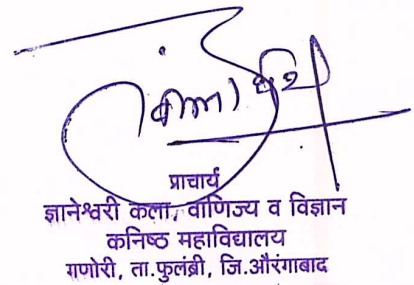 प्राचार्य
ज्ञानेश्वरी कला, वाणिज्य व विज्ञान
कनिष्ठ महाविद्यालय
गणोरी, ता.फुलंब्री, जि.औरंगाबाद